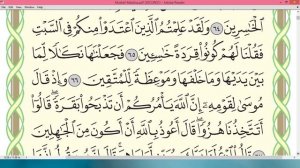 ٱلۡخَٰسِرِينَ ٦٤ وَلَقَدۡ عَلِمۡتُمُ ٱلَّذِينَ ٱعۡتَدَوۡاْ مِنكُمۡ فِي ٱلسَّبۡتِ
فَقُلۡنَا لَهُمۡ كُونُواْ قِرَدَةً خَٰسِـِٔينَ ٦٥ فَجَعَلۡنَٰهَا نَكَٰلٗا لِّمَا
بَيۡنَ يَدَيۡهَا وَمَا خَلۡفَهَا وَمَوۡعِظَةٗ لِّلۡمُتَّقِينَ ٦٦ وَإِذۡ قَالَ
مُوسَىٰ لِقَوۡمِهِۦٓ إِنَّ ٱللَّهَ يَأۡمُرُكُمۡ أَن تَذۡبَحُواْ بَقَرَةٗۖ قَالُوٓاْ
أَتَتَّخِذُنَا هُزُوٗاۖ قَالَ أَعُوذُ بِٱللَّهِ أَنۡ أَكُونَ مِنَ ٱلۡجَٰهِلِينَ